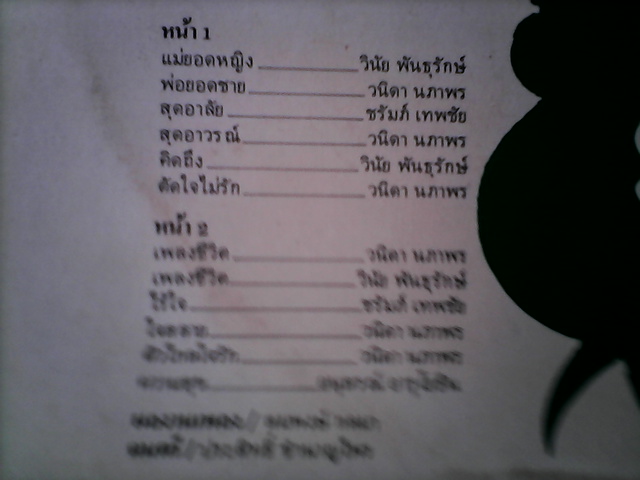 หน้า 1
แม่ยอดหญิง วินัย พันธุรักษ์
พ่อยอดชาย วนิดา นภาพร
สุดอาลัย ชรัมภ์ เทพชัย
สุดอาวรณ์ วนิดา นภาพร
คิดถึง วินัย พันธุรักษ์
ตัดใจไม่รัก วนิดา นภาพร
หน้า 2
เพลงชีวิต วนิดา นภาพร
เพลงชีวิต วินัย พันธุรักษ์
ไร้ใจ ชรัมภ์ เทพชัย
วนิดา นภาพร
วนิดา นภาพร